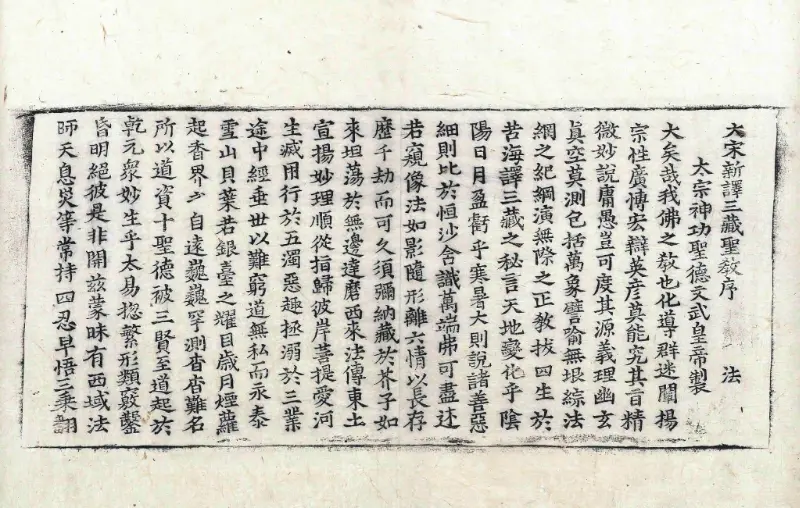 大宋新譯三藏聖教序　法
太宗神功聖德文武皇帝製
大矣哉我佛之教也化導群迷闡揚
宗性廣博宏辯英彦莫能究其旨精
微妙說庸愚豈可度其源義理幽玄
真空莫測包括萬象譬喻無垠綜法
網之紀綱演無際之正教拔四生於
苦海譯三藏之秘言天地變化乎陰
陽日月盈虧乎寒暑大則說諸善惡
細則比於恒沙含識萬端弗可盡述
若窺像法如影隨形離六情以長存
歷千劫而可久須彌納藏於芥子如
來坦蕩於無邊達磨西來法傳東土
宣揚妙理順從指歸彼岸菩提愛河
生滅用行於五濁惡趣拯溺於三業
途中經垂世以難窮道無私而永泰
雪山貝葉若銀臺之耀目歲月煙蘿
起香界之自遠巍巍罕測杳杳難名
所以道資十聖德被三賢至道起於
乾元眾妙生乎太易揔繁形類竅鑿
昏明絕彼是非開茲蒙昧有西域法
師天息災等常持四忍早悟三乘翻